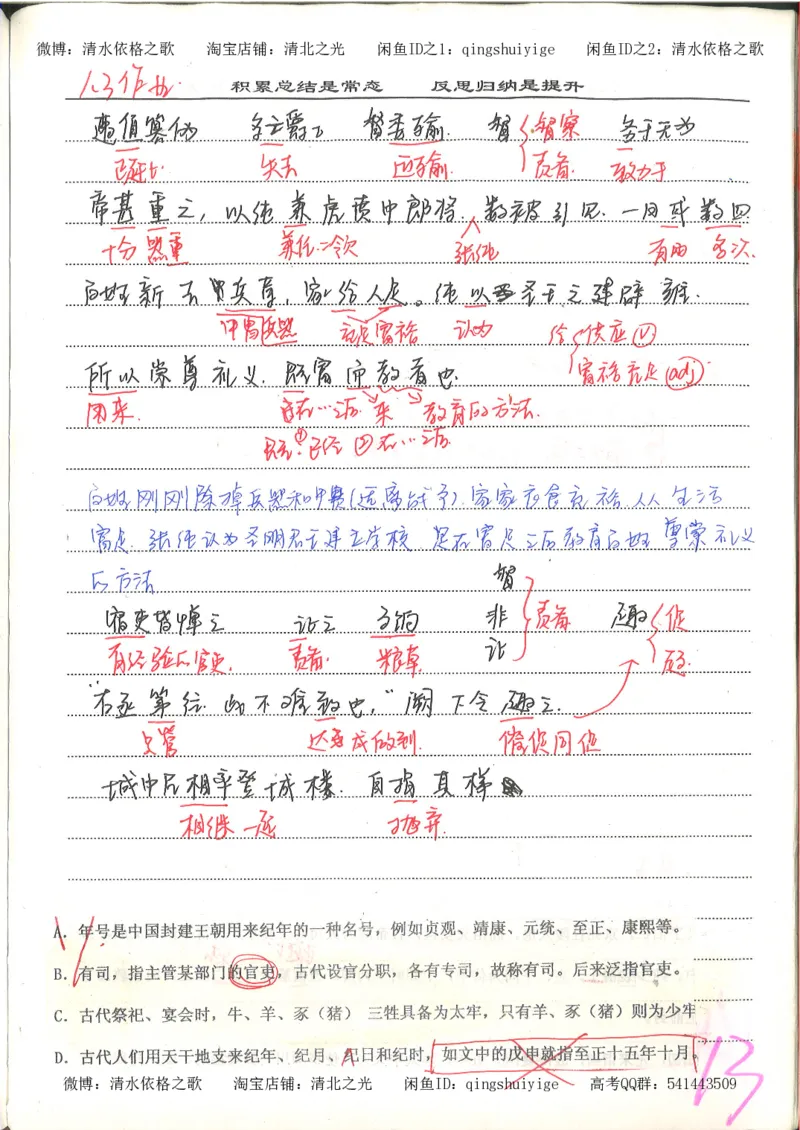 微博：清水依格之歌 淘宝店铺：清北之光 闲鱼ID之1：qingshuiyige 闲鱼ID之2：清水依格之歌
1.3作业
积累总结是常态 反思归纳是提升
遭值篡伪 督 督察 务于无为
失去 责备 致力于
帝甚重之，以纯兼虎贲中郎将，数被引见，一月或数四
十分 器重 兼任 张纯 有时 多次
百姓新去兵革，家给人足。纯以圣王之建辟雍，
甲胄兵器 衣食富裕 认为 给 供应(V)
富裕充足(adj)
所以崇尊礼义，既富而教者也。
用来 已在…之后 来 教育的方法
既：①已经 ②在…之后
百姓刚刚除掉兵器和甲胄(远离战争)，家家衣食充裕人人生活
富足，张纯认为圣明君主建立学校，是在富足之后教育百姓尊崇礼义
的方法
督
宿吏皆惮之 让之 刍饷 非 责备 趣 促
有经验的官吏 责备 粮草 让
“右丞第往，此不难致也，”阙下令趣之
只管 达到 催促
城中民相率登城楼，自捐其梯
相继一起 抛弃
A. 年号是中国封建王朝用来纪年的一种名号，例如贞观、靖康、元统、至正、康熙等。
B. 有司，指主管某部门的官吏，古代设官分职，各有专司，故称有司。后来泛指官吏。
C. 古代祭祀、宴会时，牛、羊、豕（猪） 三牲具备为太牢，只有羊、豕（猪）则为少牢
D. 古代人们用天干地支来纪年、纪月、纪日和纪时，如文中的戊申就指至正十五年十月。
13
微博：清水依格之歌 淘宝店铺：清北之光 闲鱼ID：qingshuiyige 高考QQ群：541443509